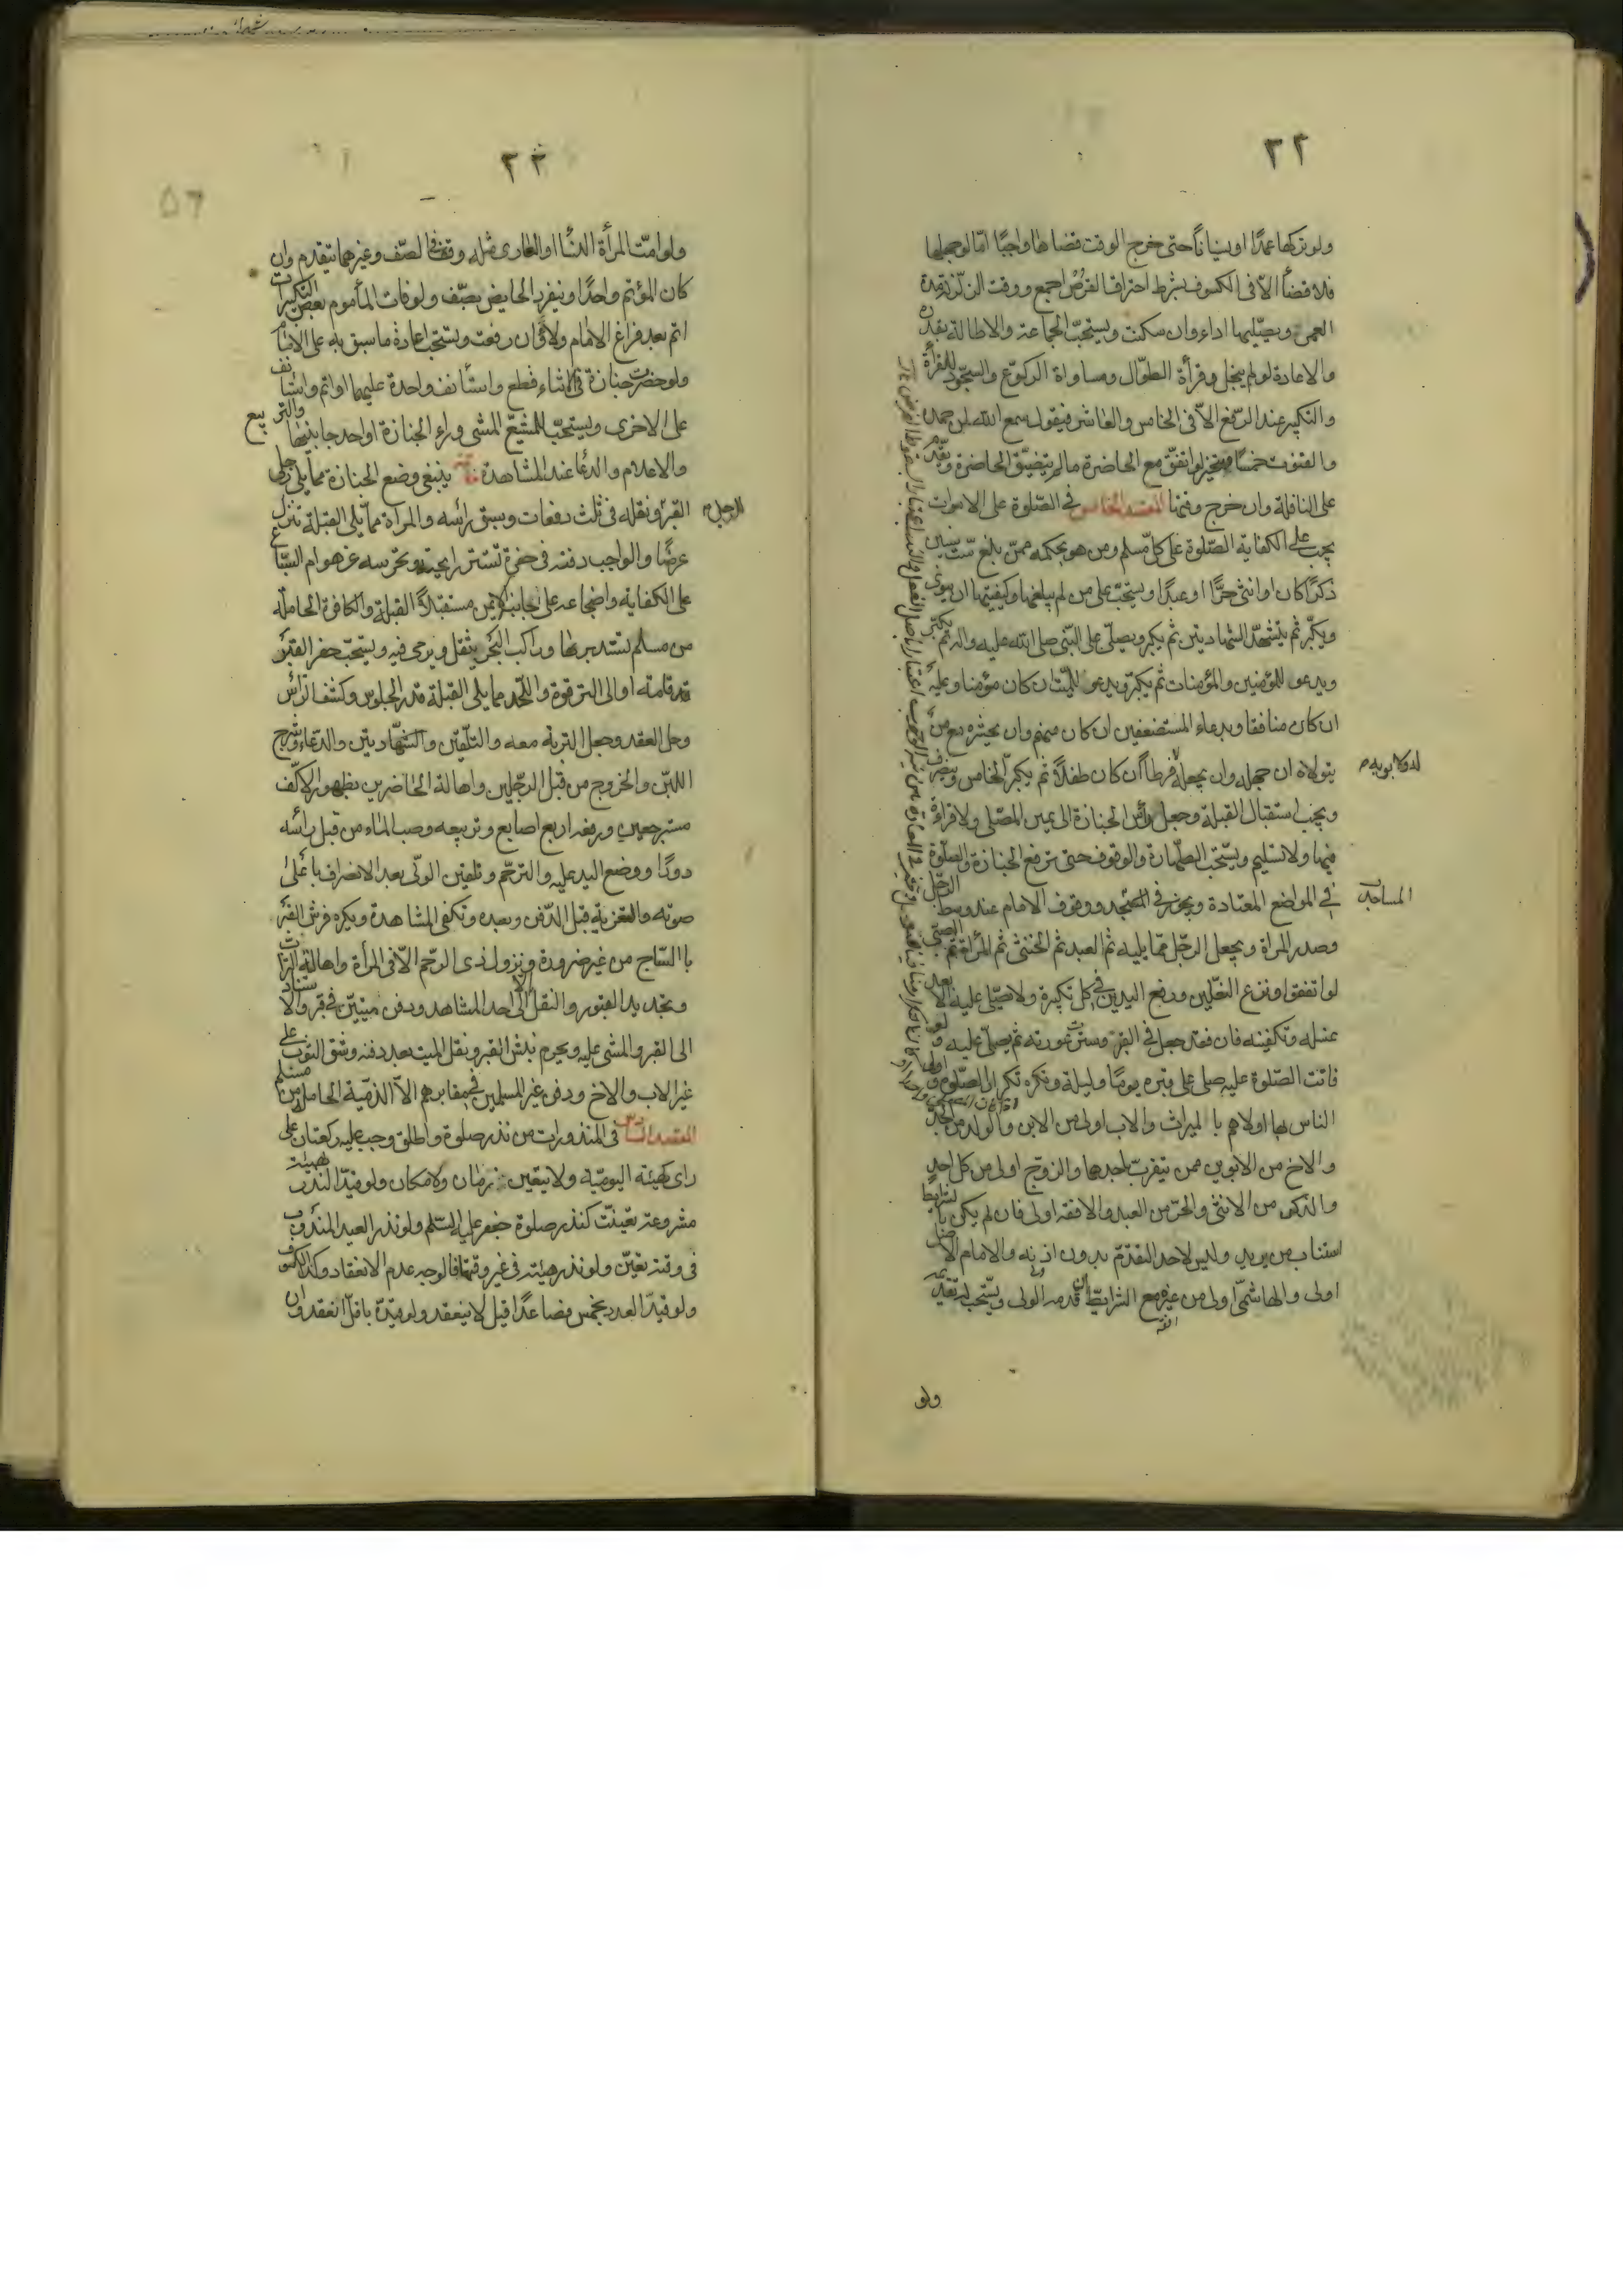 ٢٢
ولو تركها عمدًا او نسيانًا حتى خرج الوقت قضاها واجبًا امّا لو جهلها
فلا قضأ الاّ فى الكسوف بشرط احتراق القرص اجمع ووقت الزلزلة مدة
العمر ويصلّيها اداء وان سكنت ويستحبّ الجماعة والاطالة بقدره
والاعادة لو لم ينجل وقرأة الطوّال ومساواة الركوّع والسجّود للقرأة
والتكبير عند الرّفع الاّ فى الخامس والعاشر فيقول سمع الله لمن حمده
والقنوت خمسًا ويتخير لو اتفق مع الحاضرة ما لم يتضيّق الحاضرة ويقدّم
على النافلة وان خرج وقتها المقصد الخامس فى الصّلوة على الاموات
يجب على الكفاية الصّلوة على كلّ مسلم ومن هو بحكمه ممّن بلغ ستّ سنين
ذكرًا كان او انثى حرًّا او عبدًا ويستحبّ على من لم يبلغها وكيفيتها ان ينوى
ويكبّر ثم يتشهدّ الشهادتين ثم يكبر ويصلّى على النّبى صلى الله عليه واله ثم يكبّر
ويدعو للمؤمنين والمؤمنات ثم يكبّر ويدعو للميّت ان كان مؤمنا وعليه
ان كان منافقا وبدعاء المستضعفين ان كان منهم وان يحشره مع من
يتولاه ان جهله وان يجعله فرطاً ان كان طفلاً ثم يكبر الخامس وينصرف
له ولابويه م
ويجب استقبال القبلة وجعل رأس الجنازة الى يمين المصّلى ولا قراءة
فيها ولا تسليم ويستّحب الطهّارة والوقوف حتى ترفع الجنازة والصلّوة
فى المواضع المعتادة ويجوز فى المسّجد ووقوف الامام عند وسط الرّجل
المساجد
وصدر المراة ويجعل الرّجل ممّا يليه ثم العبد ثم الخنثى ثم المرأة ثم الصبّى
لو اتفق او نزع النعّلين ورفع اليدين فى كل تكبيرة ولا يصّلى عليه الاّ بعد
غسله وتكفينه فان فقد جعل فى القبر وسترت عورته ثم يصلّى عليه ولو
فاتت الصّلوة عليه صلى على قبره يومًا وليلة ويكره تكرار الصّلوة و اولى
الناس بها اولاهم با الميراث والاب اولى من الابن والولد من الجدّ
والاخ من الابوين ممن يتقربّ باحدهما والزوّج اولى من كل احد
والذكر من الانثى والحرّ من العبد والافقه اولى فان لم يكن بالشرايط
استناب من يريد وليس لاحد التقدّم بدون اذنه والامام الاصل
اولى والهاشمىّ اولى من غيره مع الشرايّط ان قدمه الولى ويستّحب له تقديمه
ولو
٢٣
ولو امّت المرأة النسّأ او العارى مثله وقف فى الصّف وغيرهما يتقدم وان
كان المؤتم واحدًا وينفرد الحايض بصّف ولو فات المأموم بعض التكبيرات
اتم بعد فراغ الامام ولاءً وان رفعت ويستحبّ اعادة ما سبق به على الامام
ولو حضرت جنازة فى الاثناء قطع واستأنف واحدة عليهما او اتم واستأنف
على الاخرى ويستحبّ للمشيّع المشى وراء الجنازة او احد جانبيها والتربيع
والاعلام والدعّا عند المشاهدة خاتمة ينبغى وضع الجنازة ممّا يلى رجلى
القبر ونقله فى ثلث دفعات وسبق رأسه والمراة ممّا يلى القبلة تنزل
للرجل م
عرضًا والواجب دفنه فى حفرة تستر رايحته وتحرسه عن هوام السبّاع
على الكفاية واضجاعه على جانبه الايمن مستقبلاً القبلة والكافرة الحاملة
من مسلم تستدبر بها وراكب البّحر يثقل ويرمى فيه ويستحبّ حفر القبر
قدر قامته او الى الترقوة واللّحد مما يلى القبلة قدر الجلوس وكشف الرّأس
وحل العقد وجعل التربة معه والتلّقين والشهّادتين والدعّاء وشرج
اللبّن والخروج من قبل الرّجلين واهالة الحاضرين بظهور الاكّف
مسترجعين ورفعه اربع اصابع وتربيعه وصب الماء من قبل رأسه
دورًا ووضع اليد عليه والترّحم وتلقين الولّى بعد الانصراف با على
صوته والتعزية قبل الدّفن وبعده وتكفى المشاهدة ويكره فرش القبر
با السّاج من غير ضرورة ونزول ذى الرّحم الاّ فى المرأة واهالته التراب
وتجديد القبور والنقل الاّ الى احد المشاهد ودفن ميتيّن فى قبر والاستناد
الى القبر والمشى عليه ويحرم نبش القبر ونقل الميت بعد دفنه وشق الثوب على
غير الاب والاخ ودفن غير المسلمين فى مقابرهم الاّ الذمّية الحامل من مسلم
المقصد السادس فى المنذورات من نذر صلوة واطلق وجب عليه ركعتان على
راى كهيئة اليوميّة ولا يتعّين زمان ولا مكان ولو قيدّ النذر بهيئة
مشروعة تعينّت كنذر صلوة جعفر عليه السّلم ولو نذر العيد المندوب
فى وقته تعيّن ولو نذر هيئته فى غير وقتها فالوجه عدم الانعقاد وكذا الكسوف
ولو قيدّ العدد بخمس فصاعدًا قيل لا ينعقد ولو قيدّه باقلّ انعقد وان